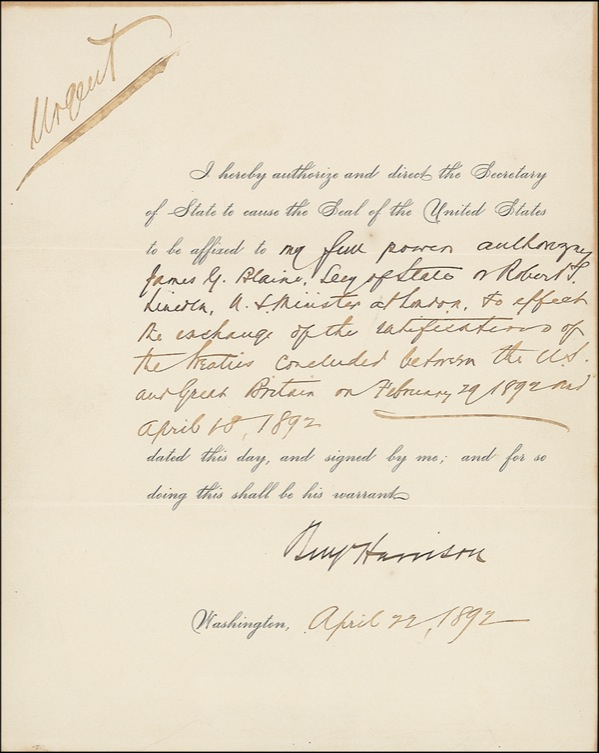 Urgent
I hereby authorize and direct the Secretary
of State to cause the Seal of the United States
to be affixed to my full power authorizing
James G. Blaine, Secy of State or Robert T.
Lincoln, U. S. Minister at London, to effect
the exchange of the ratifications of
the treaties concluded between the U.S.
and Great Britain on February 29 1892 and
April 18, 1892
dated this day, and signed by me; and for so
doing this shall be his warrant
Benj Harrison
Washington, April 22, 1892